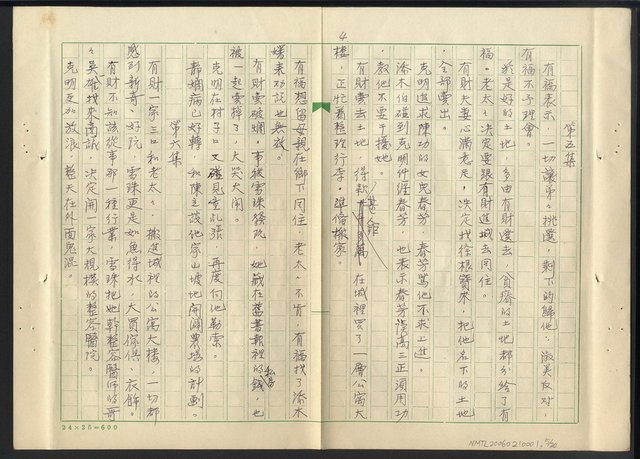 4
第五集
有福表示，一切讓弟々挑選，剩下的歸他，淑美反對，
有福不予理會。
於是好的土地，多由有財選去，貧瘠的土地都分給了有
福。老太々決定要跟有財進城去同住。
有財夫妻心滿意足，決定找徐根寶來，把他名下的土地
全部賣出。
克明追求陳功的女兒春芳，春芳罵他不求上進。
添木伯碰到克明糾纏春芳，也表示春芳讀高三正須用功
，教他不要干擾她。
有財賣去土地，得款甚鉅在城裡買了一層公寓大
樓，正忙着整理行李，準備搬家。
有福想留母親在鄉下同住，老太々不肯，有福找了添木
嬸來勸說也無效。
有財要破爛，事被雪珠發現，她藏在舊書報裡的私房錢，也
被一起賣掉了，大哭大鬧。
克明在村子口又碰見金乱張，再度向他勒索。
靜嫻病已好轉，和陳立談他家山坡地開闢農場的計劃。
第六集
有財一家三口和老太々，搬進城裡的公寓大樓，一切都
感到新奇、好玩，雪珠更是如魚得水，大買傢俱、衣飾。
有財不知該從事那一種行業，雪珠把她幹整容醫師的哥
々吳雄找來商議，決定開一家大規模的整容醫院。
克明更加放浪，整天在外面鬼混。
24×25=600
NMTL20060210001 5/20